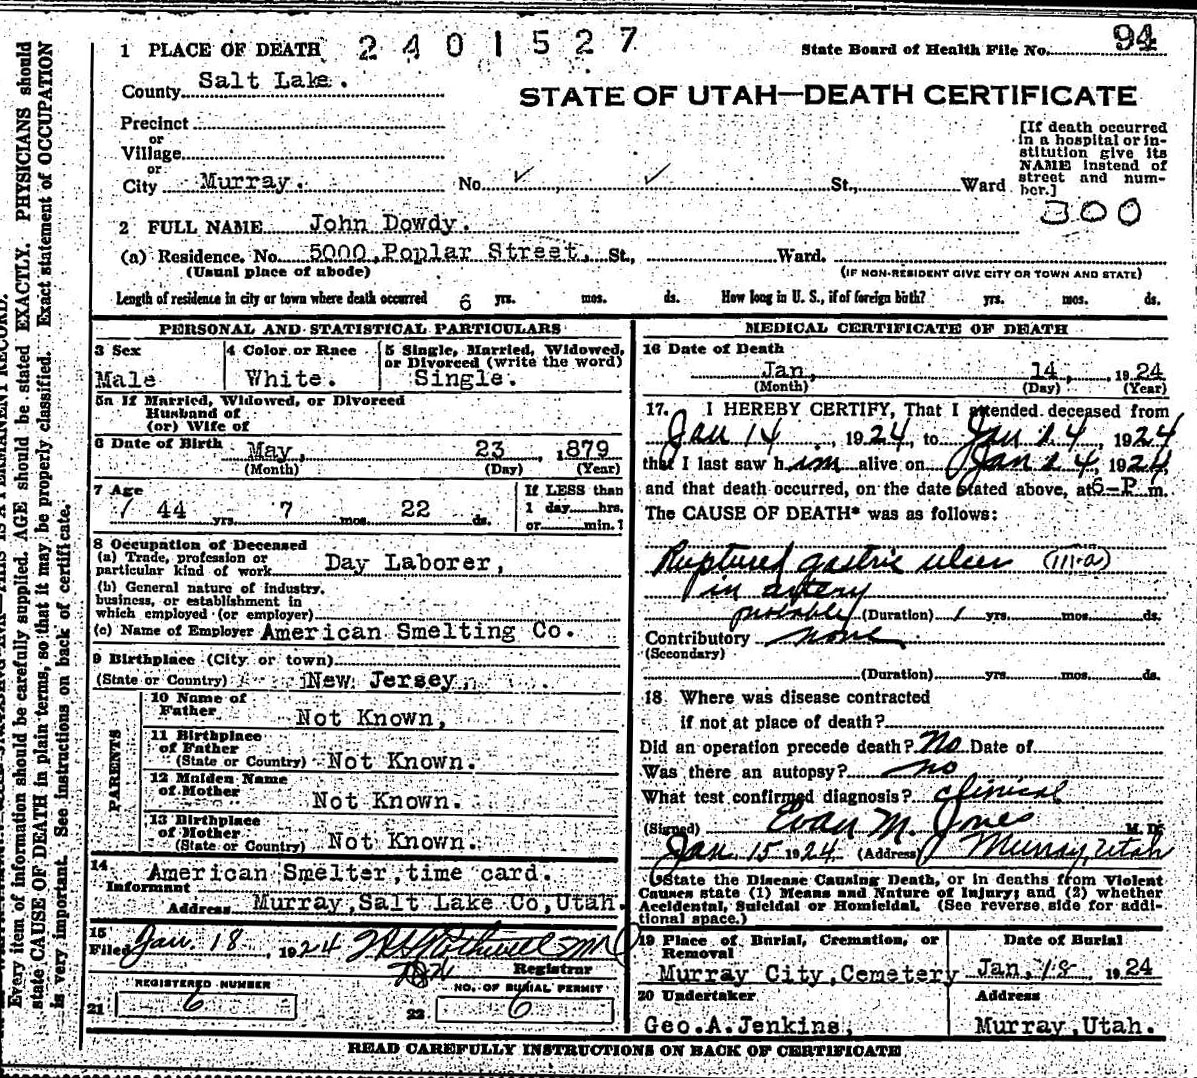 1 PLACE OF DEATH 2401527 State Board of Health File No. 94
County Salt Lake.
STATE OF UTAH—DEATH CERTIFICATE
Precinct
or
Village
or
City Murray. No. St., Ward
[If death occurred
in a hospital or in-
stitution give its
NAME instead of
street and num-
ber.]
300
2 FULL NAME John Dowdy.
(a) Residence. No. 5000 Poplar Street, St., Ward.
(Usual place of abode) (IF NON-RESIDENT GIVE CITY OR TOWN AND STATE)
Length of residence in city or town where death occurred 6 yrs. mos. ds. How long in U. S., if of foreign birth? yrs. mos. ds.
PERSONAL AND STATISTICAL PARTICULARS
3 Sex 4 Color or Race 5 Single, Married, Widowed,
or Divorced (write the word)
Male White. Single.
5a If Married, Widowed, or Divorced
Husband of
(or) Wife of
6 Date of Birth May, 23 ,1879
(Month) (Day) (Year)
7 Age If LESS than
44 yrs. 7 mos. 22 ds. 1 day hrs.
or min.?
8 Occupation of Deceased
(a) Trade, profession or
particular kind of work Day Laborer,
(b) General nature of industry,
business, or establishment in
which employed (or employer)
(c) Name of Employer American Smelting Co.
9 Birthplace (City or town)
(State or Country) New Jersey,
PARENTS
10 Name of
Father Not Known,
11 Birthplace
of Father
(State or Country) Not Known.
12 Maiden Name
of Mother Not Known.
13 Birthplace
of Mother
(State or Country) Not Known.
14 American Smelter,time card.
Informant
Address Murray,Salt Lake Co,Utah.
15
Filed Jan. 18, 1924
Registrar
REGISTERED NUMBER NO. OF BURIAL PERMIT
21 6 22 6
MEDICAL CERTIFICATE OF DEATH
16 Date of Death
Jan, 14, , 1924
(Month) (Day) (Year)
17. I HEREBY CERTIFY, That I attended deceased from
Jan 14, 1924, to Jan 14, 1924
that I last saw him alive on Jan 14, 1924,
and that death occurred, on the date stated above, at 6-P m.
The CAUSE OF DEATH* was as follows:
Ruptured gastric ulcer (111-a)
in artery
probably (Duration) 1 yrs. mos. ds.
Contributory none
(Secondary)
(Duration) yrs. mos. ds.
18 Where was disease contracted
if not at place of death?
Did an operation precede death? No Date of
Was there an autopsy? no
What test confirmed diagnosis? clinical
(Signed) Evan M. Jones M. D.
Jan 15 1924 (Address) Murray, Utah
*State the Disease Causing Death, or in deaths from Violent
Causes state (1) Means and Nature of Injury; and (2) whether
Accidental, Suicidal or Homicidal. (See reverse side for addi-
tional space.)
19 Place of Burial, Cremation, or Date of Burial
Removal
Murray City,Cemetery Jan, 18, 1924
20 Undertaker Address
Geo.A.Jenkins, Murray,Utah.
READ CAREFULLY INSTRUCTIONS ON BACK OF CERTIFICATE
Every item of information should be carefully supplied. AGE should be stated EXACTLY. PHYSICIANS should
state CAUSE OF DEATH in plain terms, so that it may be properly classified. Exact statement of OCCUPATION
is very important. See instructions on back of certificate.